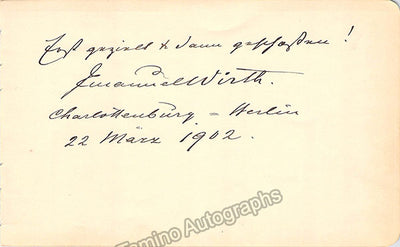 Erst gezielt & dann geschossen!
Emanuel Wirth.
Charlottenburg - Berlin
22 März 1902.
Tamino Autographs